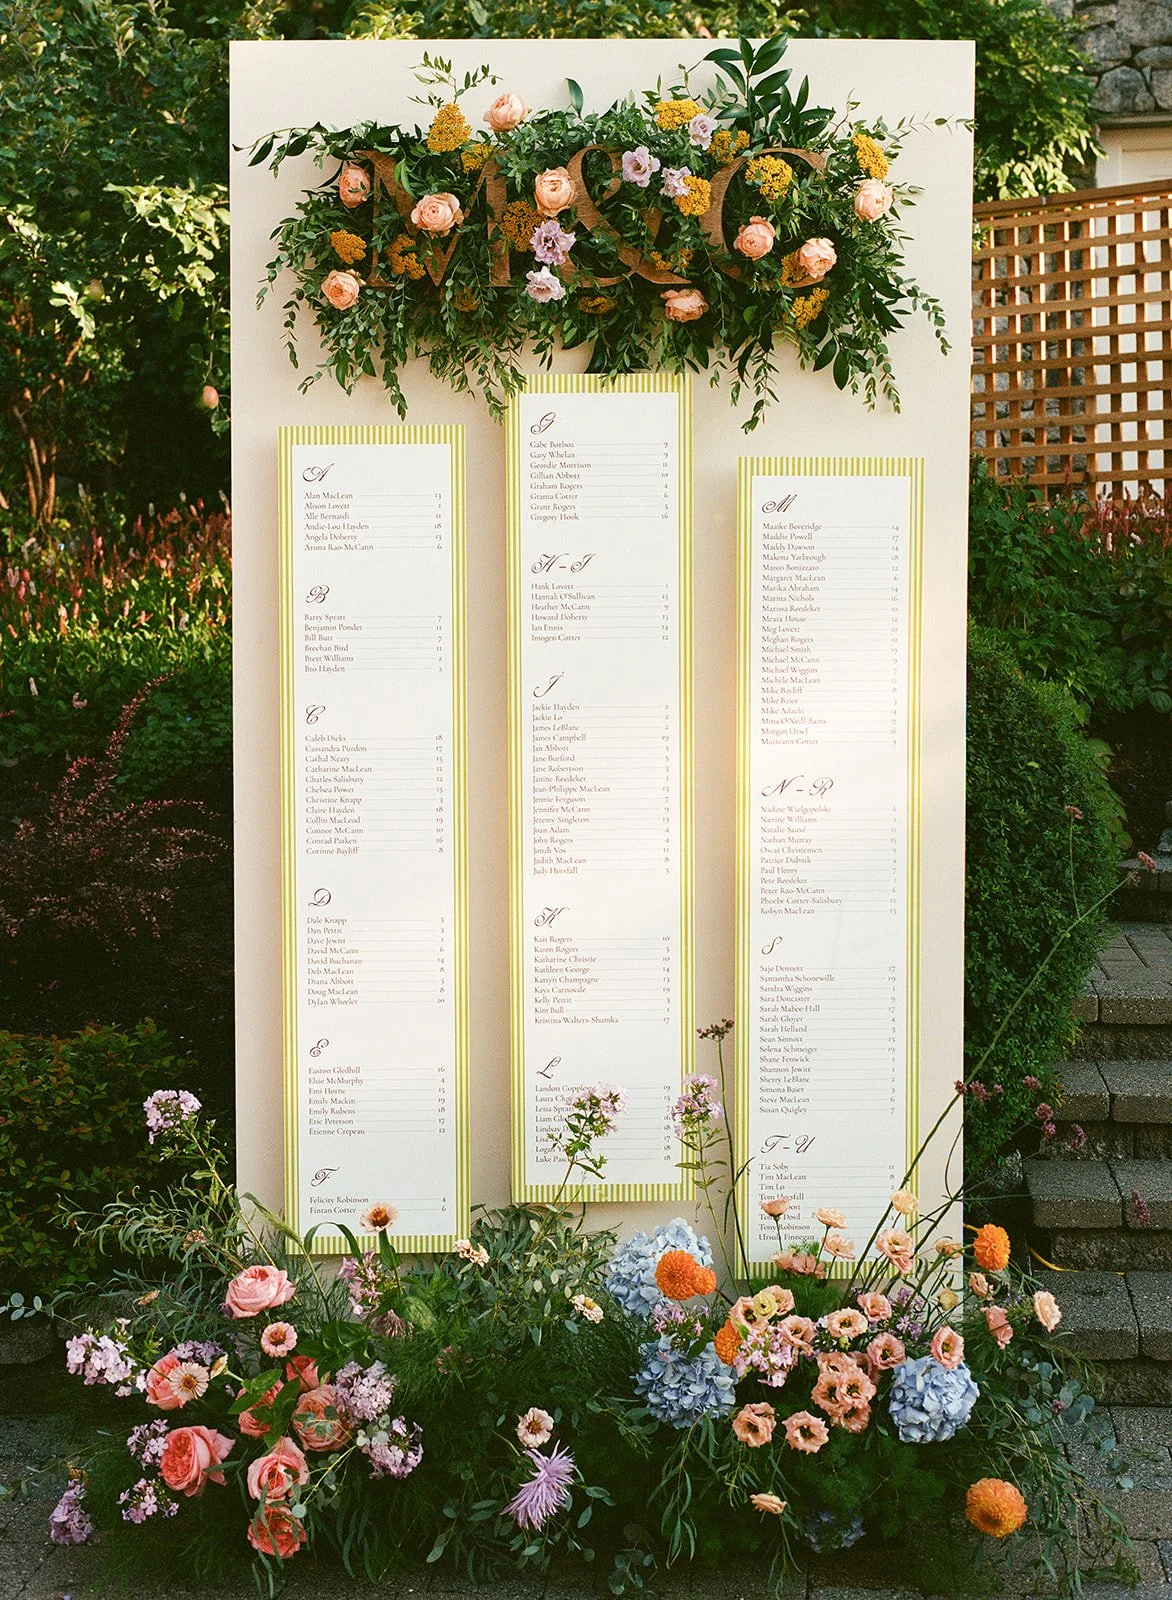 M & C
A
Alan MacLean 13
Alison Lovett 1
Alle Bernardi 11
Andie-Lou Hayden 18
Angela Doherty 13
Aruna Rao-McCann 6
B
Barry Spratt 7
Benjamin Ponder 11
Bill Butt 7
Brechan Bird 11
Brett Williams 2
Bro Hayden 2
C
Caleb Dicks 18
Cassandra Purdon 17
Cathal Neary 15
Catharine MacLean 12
Charles Salisbury 12
Chelsea Power 15
Christine Knapp 3
Claire Hayden 18
Collin MacLeod 19
Connor McCann 10
Conrad Parken 16
Corinne Bayliff 8
D
Dale Knapp 3
Dan Pettit 3
Dave Jewitt 1
David McCann 6
David Buchanan 14
Deb MacLean 8
Diana Abbott 5
Doug MacLean 8
Dylan Wheeler 10
E
Easton Gledhill 16
Elsie McMurphy 4
Emi Horne 15
Emily Mackin 19
Emily Rubens 18
Eric Peterson 17
Etienne Crepeau 12
F
Felicity Robinson 4
Fintan Cotter 6
G
Gabe Borboa 9
Gary Whelan 9
Geordie Morrison 11
Gillian Abbott 10
Graham Rogers 4
Grania Cotter 6
Grant Rogers 5
Gregory Hook 16
H - I
Hank Lovett 1
Hannah O'Sullivan 15
Heather McCann 9
Howard Doherty 13
Ian Ennis 14
Imogen Cotter 12
J
Jackie Hayden 2
Jackie Lo 2
James LeBlanc 2
James Campbell 19
Jan Abbott 5
Jane Burford 5
Jane Robertson 3
Janine Reedeker 1
Jean-Philippe MacLean 13
Jennie Ferguson 7
Jennifer McCann 9
Jeremy Singleton 13
Joan Adam 4
John Rogers 4
Jonah Vos 11
Judith MacLean 8
Judy Horsfall 5
K
Kait Rogers 10
Karen Rogers 5
Katharine Christie 10
Kathleen George 14
Katryn Champagne 13
Kaya Carnovale 19
Kelly Pettit 3
Kim Bull 1
Kristina Walters-Shumka 17
L
Landon 19
Laura 15
Leisa Spratt 7
Liam 16
Lindsay 18
Lisa
Logan 18
Luke 18
M
Maaike Beveridge 14
Maddie Powell 17
Maddy Dawson 14
Makena Yarbrough 18
Marco Bonizzato 12
Margaret MacLean 6
Marika Abraham 14
Marina Nichols 16
Marissa Reedeker 10
Meara House 12
Meg Lovett 10
Meghan Rogers 10
Michael Smith 19
Michael McCann 9
Michael Wiggins 7
Michèle MacLean 12
Mike Bayliff 8
Mike Baier 3
Mike Adachi 14
Mina O'Neill-Bains 17
Morgan Ursel 16
Muireann Cotter 9
N - R
Nadine Wielgopolski 6
Nanine Williams 2
Natalie Sauvé 11
Nathan Murray 15
Oscar Christensen 9
Patrice Dabnik 4
Paul Henry 7
Pete Reedeker 1
Peter Rao-McCann 6
Phoebe Cotter-Salisbury 12
Robyn MacLean 13
S
Saje Dennett 17
Samantha Schonewille 19
Sandra Wiggins 1
Sara Doncaster 9
Sarah Mabee-Hall 17
Sarah Gloyer 4
Sarah Helland 3
Sean Sinnott 15
Selena Schmeiger 19
Shane Fenwick 1
Shannon Jewitt 1
Sherry LeBlanc 2
Simona Baier 3
Steve MacLean 6
Susan Quigley 7
T - U
Tia Soby 11
Tim MacLean 8
Tim Lo 2
Tom Horsfall
Tony Robinson
Ursula Finnegan